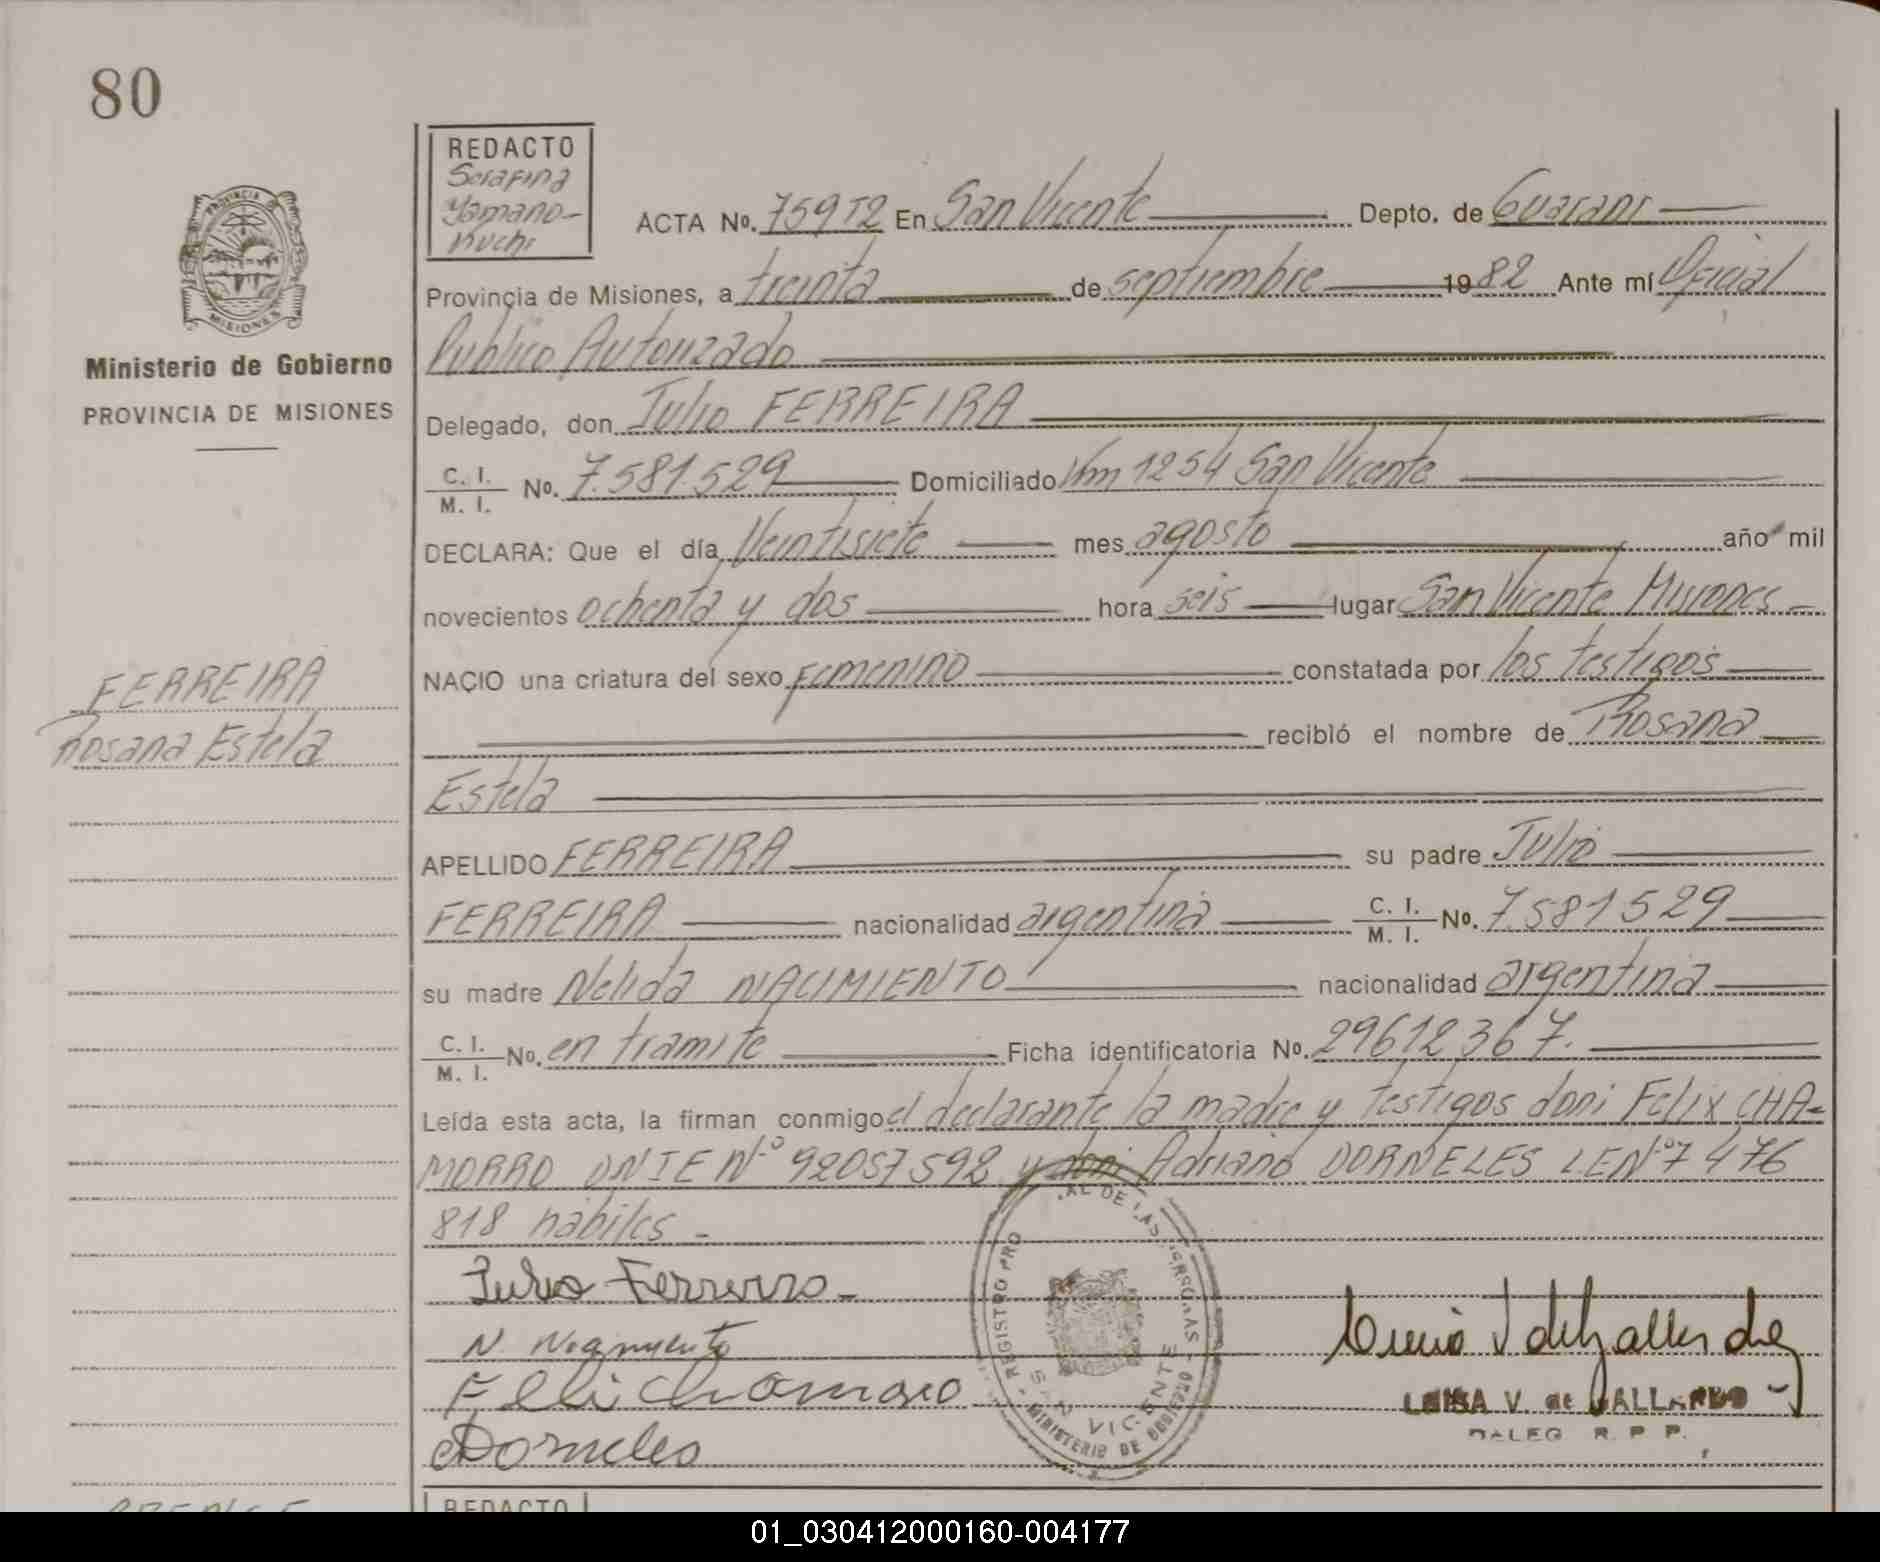 80
REDACTO
Serafina
Yamano-
nuchi
PROVINCIA DE
MISIONES
Ministerio de Gobierno
PROVINCIA DE MISIONES
FERREIRA
Rosana Estela
ACTA No. 759T2 En San Vicente Depto. de Guaraní
Provincia de Misiones, a treinta de septiembre 1982 Ante mí Oficial
Publico Autorizado
Delegado, don Julio FERREIRA
C. I. / M. I. No. 7.581.529 Domiciliado Km 1254 San Vicente
DECLARA: Que el día Veintisiete mes agosto año mil
novecientos ochenta y dos hora seis lugar San Vicente Misiones
NACIO una criatura del sexo femenino constatada por los testigos
recibló el nombre de Rosana
Estela
APELLIDO FERREIRA su padre Julio
FERREIRA nacionalidad argentina C. I. / M. I. No. 7.581529
su madre Nelida NACIMIENTO nacionalidad argentina
C. I. / M. I. No. en tramite Ficha identificatoria No. 29612367.
Leída esta acta, la firman conmigo el declarante la madre y testigos doni Felix CHA-
MORRO DNIE Nº 92057592 y doni Adriano DORNELES LE Nº 7476
818 habiles -
Julio Ferreira
N. Nacimiento
Feli Chamorro
Dorneles
REGISTRO PRO AL DE LAS PERSONAS
SAN VICENTE
MINISTERIO DE GOBIERNO
LUISA V. de GALLARDO
DALEG R. P. P.
REDACTO
01_030412000160-004177